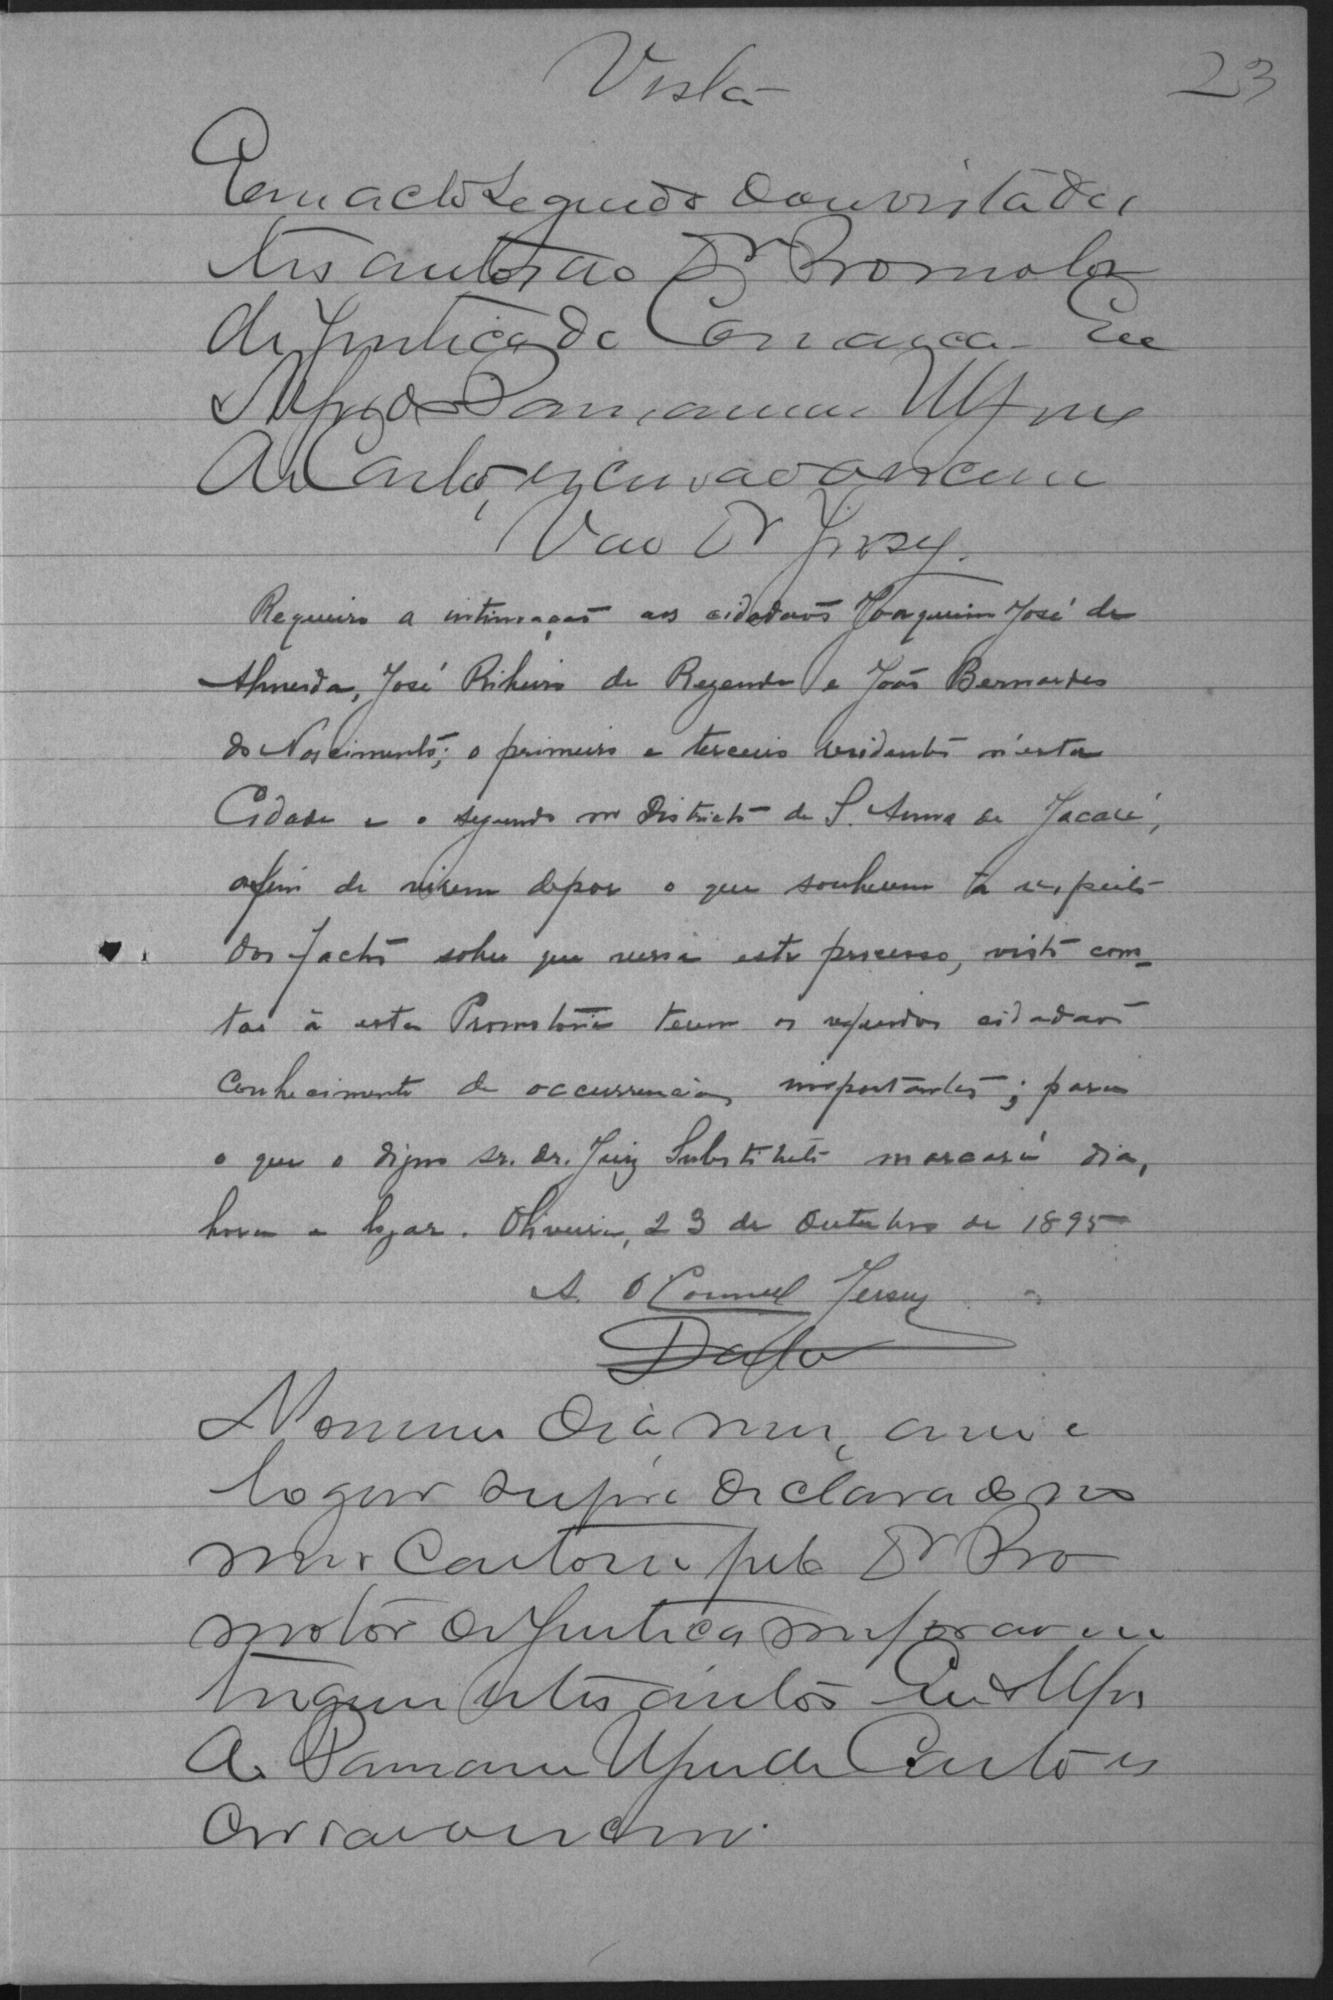 Vista
23
Em acto seguido dou vista des
tes autos ao Dr Promotor
de Justiça da Comarca Eu
Alfredo
de Castro, escrivão o escrevi
Vão Dr Jersey.
Requeiro a intimação aos cidadãos Joaquim José de
Almeida, José Ribeiro de Rezende e João Bernardes
do Nascimento; o primeiro e terceiro residentes n'esta
Cidade e o segundo no Districto de S. Anna de Jacaré,
afim de virem depor o que souberem a respeito
dos factos sobre que versa este processo, visto cons-
tar á esta Promotoria terem os referidos cidadãos
conhecimento de occurrencias importantes; para
o que o digno sr. dr. Juiz Substituto marcará dia,
hora e logar. Oliveira, 23 de Outubro de 1895
A. O'Connell Jersey
Data
No mesmo dia, mez, anno e
logar supra declarado no
meu Cartorio pelo Dr Pro
motor de Justiça me foram en
tregues estes autos Eu Alfre
do de Castro es
crivão o escrevi.